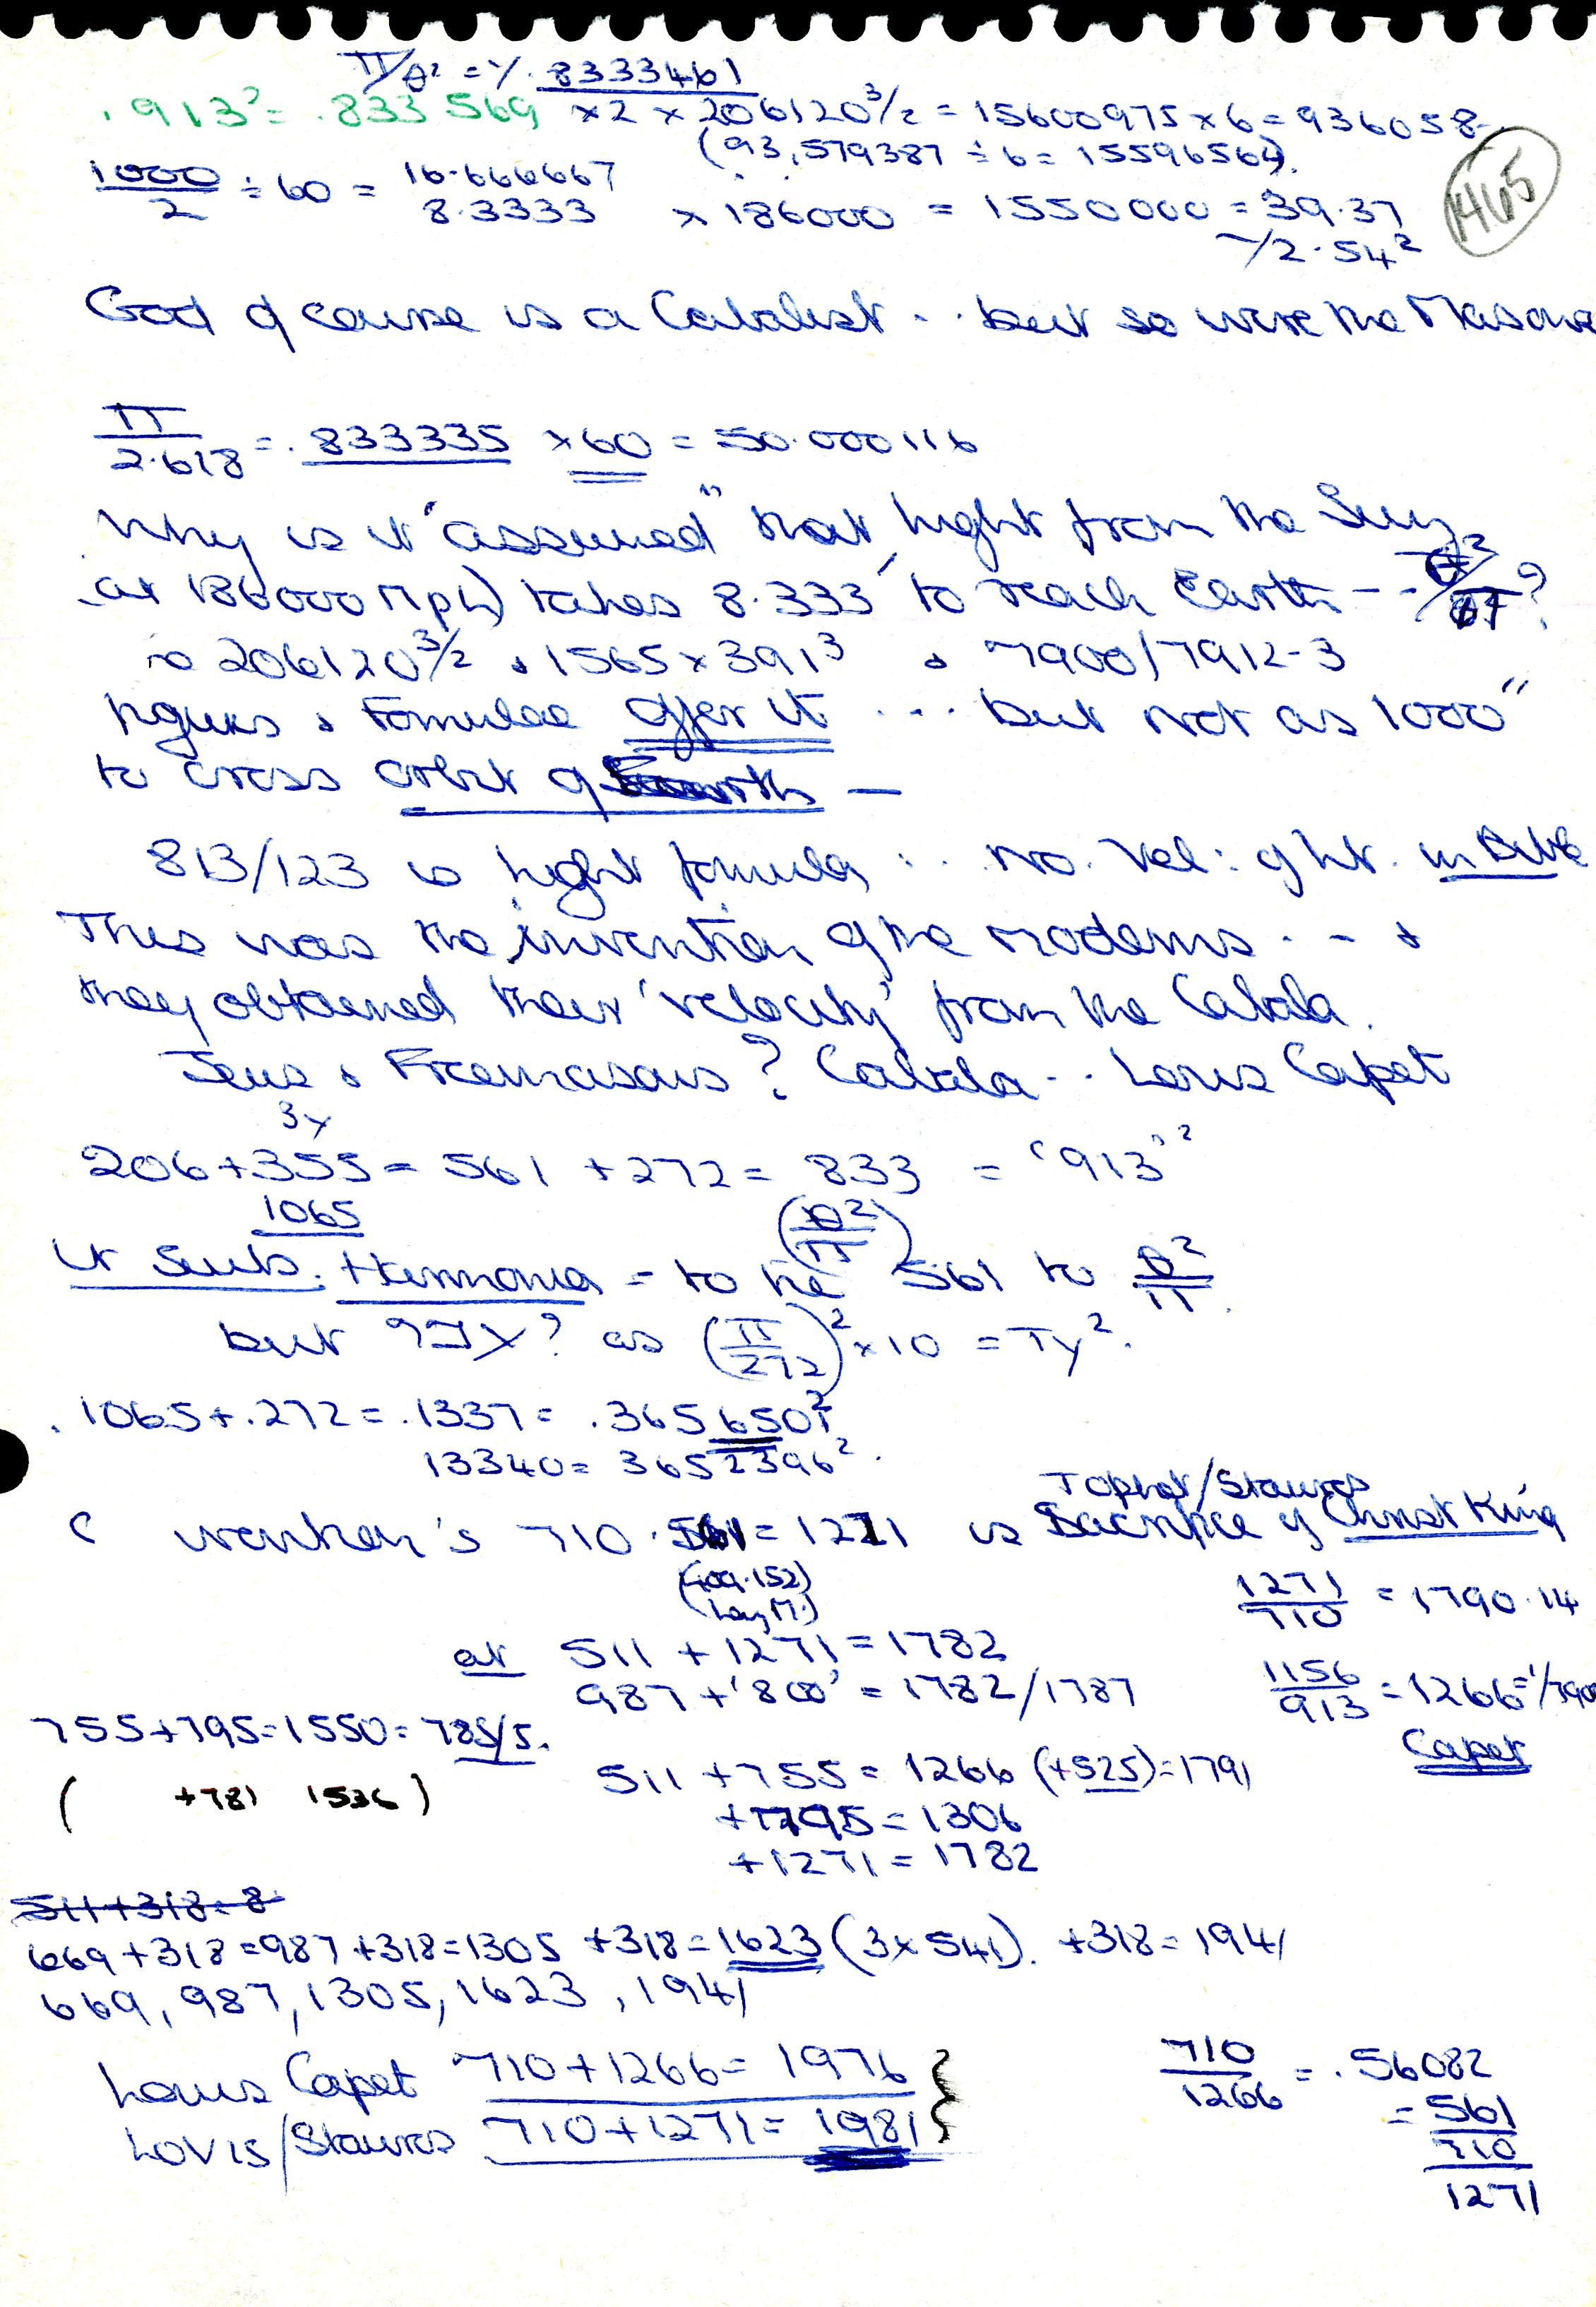 π/θ² = γ .8333461
.913² = .833569 × 2 × 206120^3/2 = 15600975 × 6 = 936058
(93,579387 ÷ 6 = 15596564).
1000/2 ÷ 60 = 16.666667
8.3333 × 186000 = 1550000 = 39.37
/2.54²
1465
God of course is a Cabalist .. but so were the Masons
π/2.618 = .833335 × 60 = 50.000116
Why is it "assumed" that light from the Sun
(at 186000 Mph) takes 8.333' to reach Earth -- θ²/π?
206120^3/2 & 1565 × 391³ & 7900/7912-3
figures & Formulae offer it ... but not as 1000"
to cross orbit of Earth —
813/123 is light formula .. No. Vel: of lt. in Bible
This was the invention of the moderns .. - &
they obtained their 'velocity' from the Cabala.
Jews & Freemasons? Cabala .. Louis Capet
3γ
206 + 355 = 561 + 272 = 833 = '913'²
1065
Harmonia = to the (θ²/π) 561 to θ²/π
but as (π/272)² × 10 = Tγ².
.1065 + .272 = .1337 = .3656501²
13340 = 3652396²
710 . 561 = 1271 is Sacrifice of Christ King
Tophat/Stauros
(409.152)
1271/710 = 1790.14
at 511 + 1271 = 1782
987 + '800' = 1782/1787
1156/913 = 1266 = 1/790
Capet
755 + 795 = 1550 = 785/5.
( +781 1536 )
511 + 755 = 1266 (+525) = 1791
+795 = 1306
+1271 = 1782
511 + 318 = 8
669 + 318 = 987 + 318 = 1305 + 318 = 1623 (3 × 541). + 318 = 1941
669, 987, 1305, 1623, 1941
Louis Capet 710 + 1266 = 1976
LOVIS/Stauros 710 + 1271 = 1981
710/1266 = .56082
= 561
710
1271